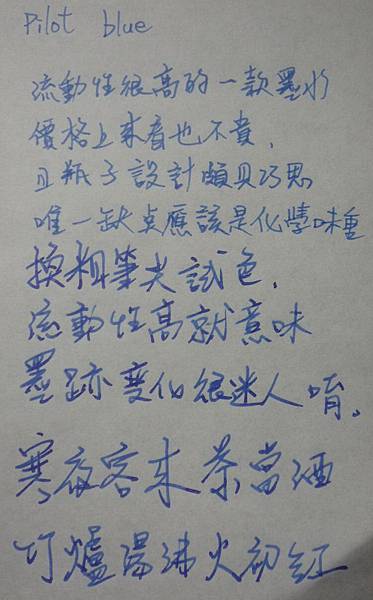 Pilot blue
流動性很高的一款墨水
價格上來看也不貴,
且瓶子設計頗具巧思
唯一缺点應該是化學味重
換粗筆尖試色,
流動性高就意味
墨跡变化很迷人唷。
寒夜客來茶當酒
竹爐湯沸火初紅